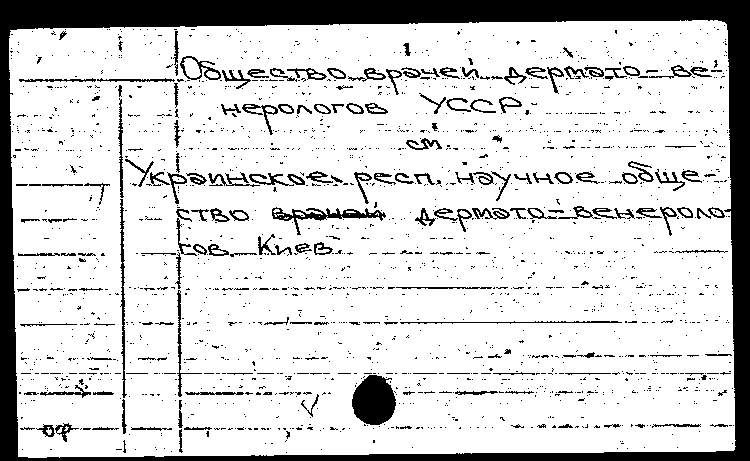 Общество врачей дермато-ве-
нерологов УССР.
см.
Украинское респ. научное обще-
ство врачей дермато-венероло-
гов. Киев.
ОФ